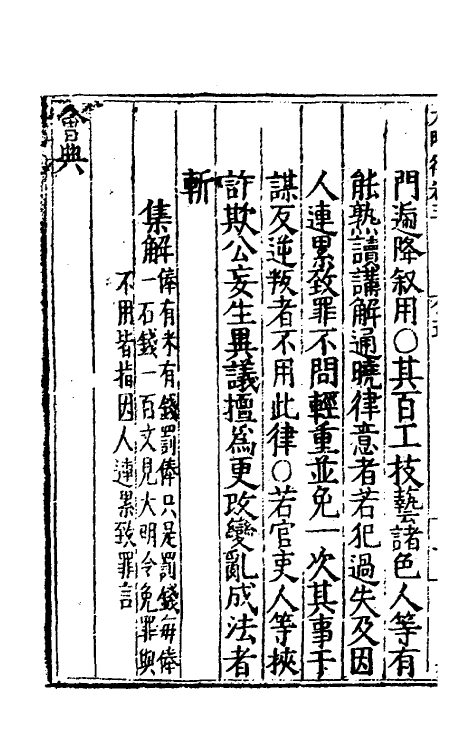 門遍降叙用〇其百工技藝諸色人等有
能熟讀講解通曉律意者若犯過失及因
人連累致罪不問輕重並免一次其事干
謀反逆叛者不用此律〇若官吏人等挾
詐欺公妄生異議擅為更改變亂成法者
斬
集解俸有米有錢罰俸只是罰錢每俸
一石錢一百文見大明令免罪與
不用皆指因人連累致罪言
會典